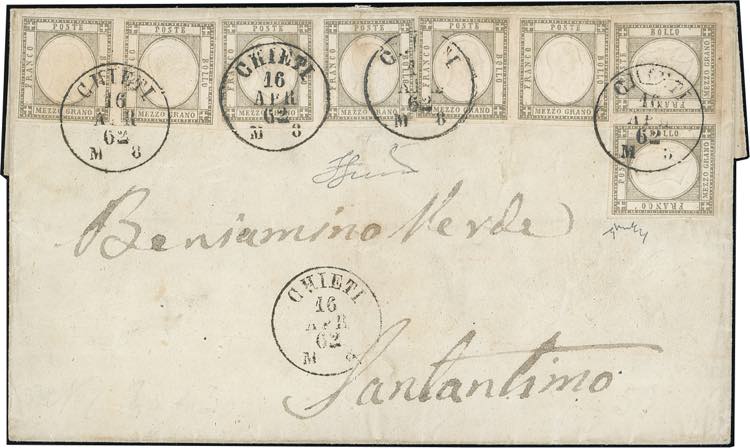 POSTE POSTE POSTE POSTE POSTE POSTE BOLLO
FRANCO BOLLO FRANCO BOLLO FRANCO BOLLO FRANCO BOLLO FRANCO BOLLO FRANCO BOLLO POSTE MEZZO GRANO
MEZZO GRANO MEZZO GRANO MEZZO GRANO MEZZO GRANO MEZZO GRANO MEZZO GRANO FRANCO
BOLLO
POSTE MEZZO GRANO
FRANCO
CHIETI
16
APR
62
M 8
CHIETI
16
APR
62
M 8
CHIETI
62
M 8
CHIETI
16
AP
62
M 8
Beniamino Verde
CHIETI
16
APR
62
M 8
Santantimo